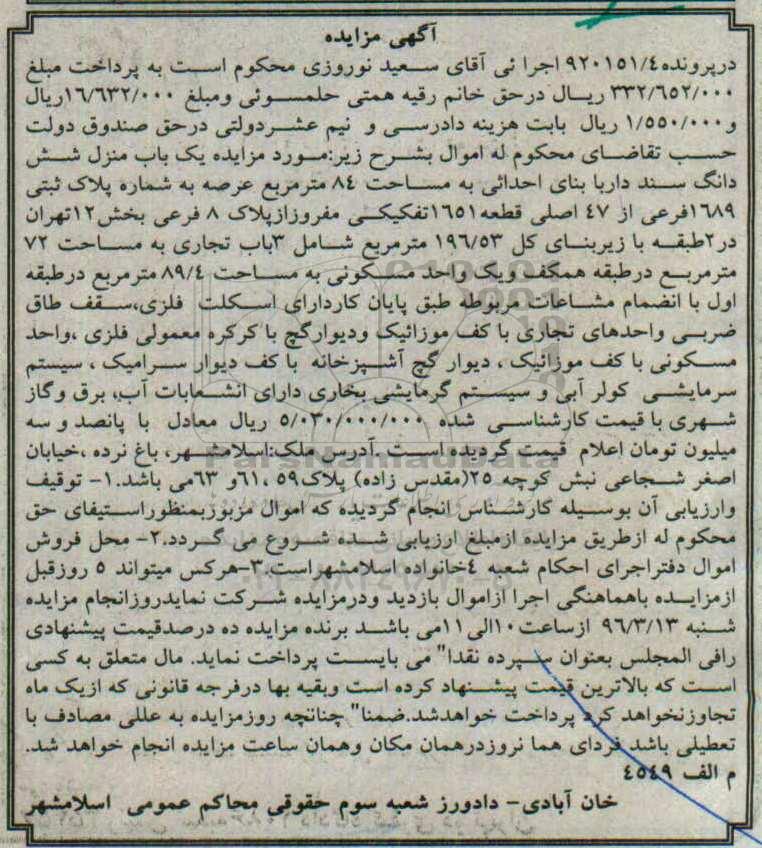 آگهی مزایده
درپرونده۹۲۰۱۵۱/٤ اجرا ئی آقای سعید نوروزی محکوم است به پرداخت مبلغ
۳۳۲/٦٥۲/۰۰۰ ریال درحق خانم رقیه همتی حلمسوئی ومبلغ ۱٦/٦۳۲/۰۰۰ریال
و۱/٥٥۰/۰۰۰ ریال بابت هزینه دادرسی و نیم عشردولتی درحق صندوق دولت
حسب تقاضای محکوم له اموال بشرح زیر:مورد مزایده یک باب منزل شش
دانگ سند داربا بنای احداثی به مساحت ۸٤ مترمربع عرصه به شماره پلاک ثبتی
۱٦۸۹فرعی از ٤۷ اصلی قطعه۱٦٥۱تفکیکی مفروزازپلاک ۸ فرعی بخش۱۲تهران
در۲طبقه با زیربنای کل ۱۹٦/٥۳ مترمربع شامل ۳باب تجاری به مساحت ۷۲
مترمربع درطبقه همکف ویک واحد مسکونی به مساحت ۸۹/٤مترمربع درطبقه
اول با انضمام مشاعات مربوطه طبق پایان کاردارای اسکلت فلزی،سقف طاق
ضربی واحدهای تجاری با کف موزائیک ودیوارگچ با کرکره معمولی فلزی ،واحد
مسکونی با کف موزائیک ، دیوار گچ آشپزخانه با کف دیوار سرامیک ، سیستم
سرمایشی کولر آبی و سیستم گرمایشی بخاری دارای انشعابات آب، برق وگاز
شهری با قیمت کارشناسی شده ٥/۰۳۰/۰۰۰/۰۰۰ ریال معادل با پانصد و سه
میلیون تومان اعلام قیمت گردیده است .آدرس ملک:اسلامشهر، باغ نرده ،خیابان
اصغر شجاعی نبش کوچه ۲٥(مقدس زاده) پلاک٥۹ ،٦۱و ٦۳می باشد.۱- توقیف
وارزیابی آن بوسیله کارشناس انجام گردیده که اموال مزبوربمنظوراستیفای حق
محکوم له ازطریق مزایده ازمبلغ ارزیابی شده شروع می گردد.۲- محل فروش
اموال دفتراجرای احکام شعبه ٤خانواده اسلامشهراست.۳-هرکس میتواند ٥ روزقبل
ازمزایده باهماهنگی اجرا ازاموال بازدید ودرمزایده شرکت نمایدروزانجام مزایده
شنبه ۹٦/۳/۱۳ ازساعت۱۰الی۱۱می باشد برنده مزایده ده درصدقیمت پیشنهادی
رافی المجلس بعنوان سپرده نقدا" می بایست پرداخت نماید. مال متعلق به کسی
است که بالاترین قیمت پیشنهاد کرده است وبقیه بها درفرجه قانونی که ازیک ماه
تجاوزنخواهد کرد پرداخت خواهدشد.ضمنا" چنانچه روزمزایده به عللی مصادف با
تعطیلی باشد فردای هما نروزدرهمان مکان وهمان ساعت مزایده انجام خواهد شد.
م الف ٤٥٤۹
خان آبادی- دادورز شعبه سوم حقوقی محاکم عمومی اسلامشهر
ParsNamadData